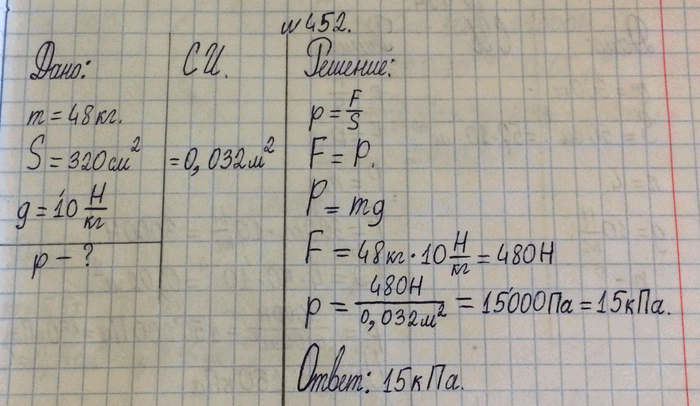 №452.
Дано:
m = 48кг.
S = 320см²
g = 10 Н/кг
p - ?
СИ.
= 0,032м²
Решение:
p = F/S
F = P.
P = mg
F = 48кг · 10 Н/кг = 480Н
p = 480Н/0,032м² = 15000Па = 15кПа.
Ответ: 15кПа.